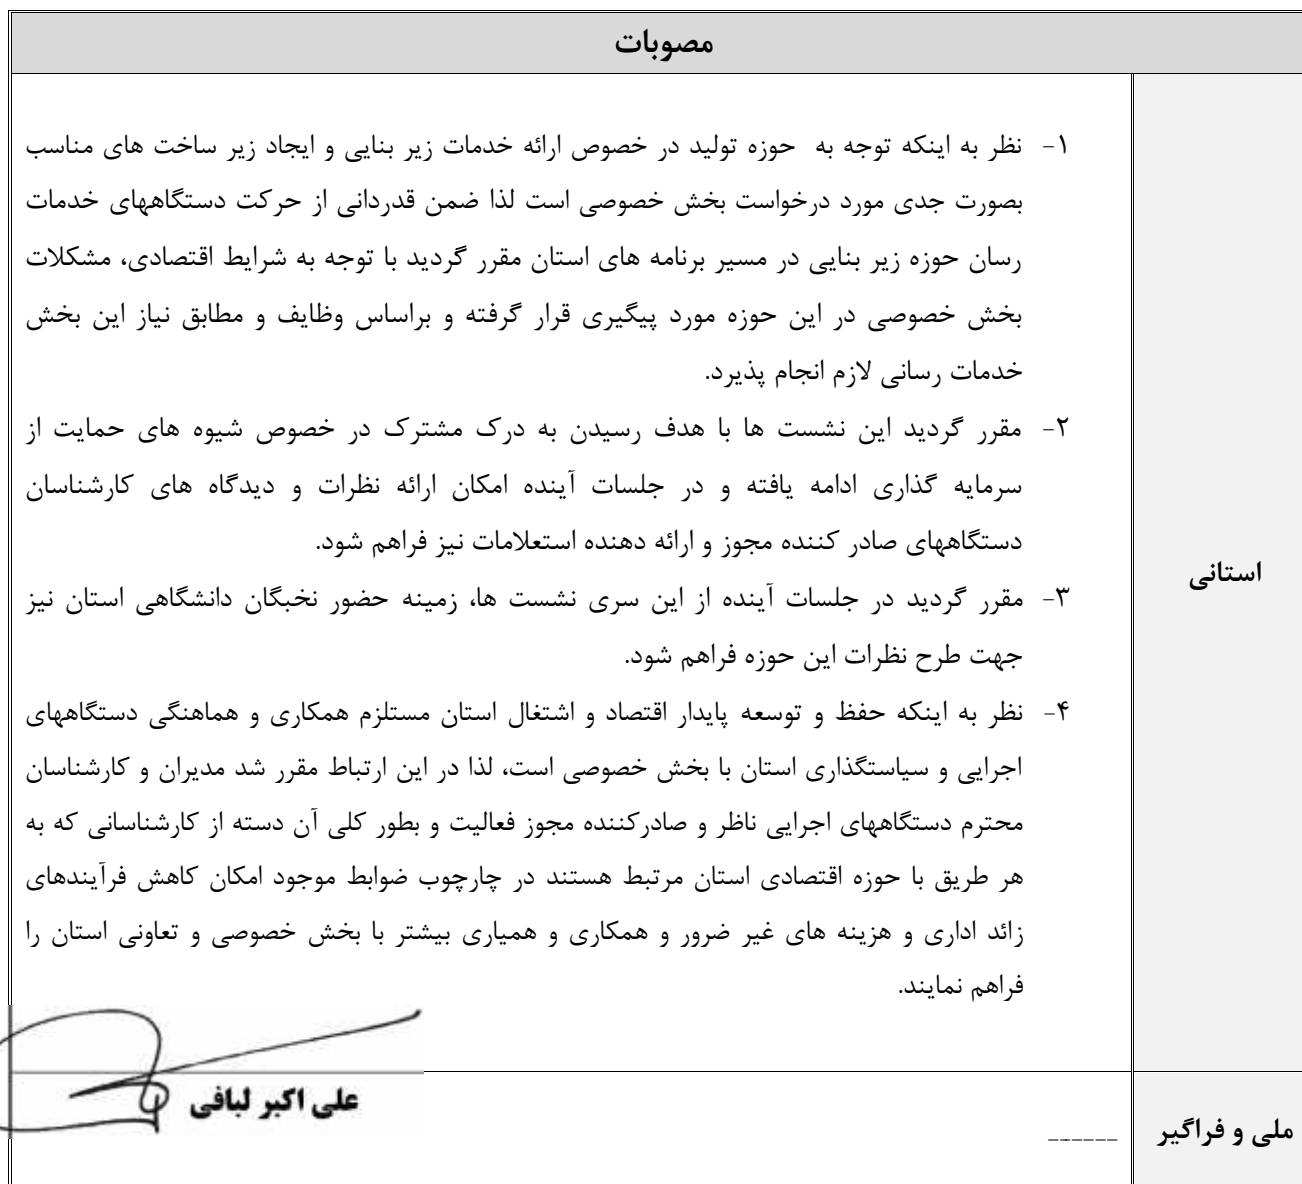 مصوبات
استانی
۱- نظر به اینکه توجه به حوزه تولید در خصوص ارائه خدمات زیر بنایی و ایجاد زیر ساخت های مناسب
بصورت جدی مورد درخواست بخش خصوصی است لذا ضمن قدردانی از حرکت دستگاههای خدمات
رسان حوزه زیر بنایی در مسیر برنامه های استان مقرر گردید با توجه به شرایط اقتصادی، مشکلات
بخش خصوصی در این حوزه مورد پیگیری قرار گرفته و براساس وظایف و مطابق نیاز این بخش
خدمات رسانی لازم انجام پذیرد.
۲- مقرر گردید این نشست ها با هدف رسیدن به درک مشترک در خصوص شیوه های حمایت از
سرمایه گذاری ادامه یافته و در جلسات آینده امکان ارائه نظرات و دیدگاه های کارشناسان
دستگاههای صادر کننده مجوز و ارائه دهنده استعلامات نیز فراهم شود.
۳- مقرر گردید در جلسات آینده از این سری نشست ها، زمینه حضور نخبگان دانشگاهی استان نیز
جهت طرح نظرات این حوزه فراهم شود.
۴- نظر به اینکه حفظ و توسعه پایدار اقتصاد و اشتغال استان مستلزم همکاری و هماهنگی دستگاههای
اجرایی و سیاستگذاری استان با بخش خصوصی است، لذا در این ارتباط مقرر شد مدیران و کارشناسان
محترم دستگاههای اجرایی ناظر و صادرکننده مجوز فعالیت و بطور کلی آن دسته از کارشناسانی که به
هر طریق با حوزه اقتصادی استان مرتبط هستند در چارچوب ضوابط موجود امکان کاهش فرآیندهای
زائد اداری و هزینه های غیر ضرور و همکاری و همیاری بیشتر با بخش خصوصی و تعاونی استان را
فراهم نمایند.
علی اکبر لبافی
ملی و فراگیر
------